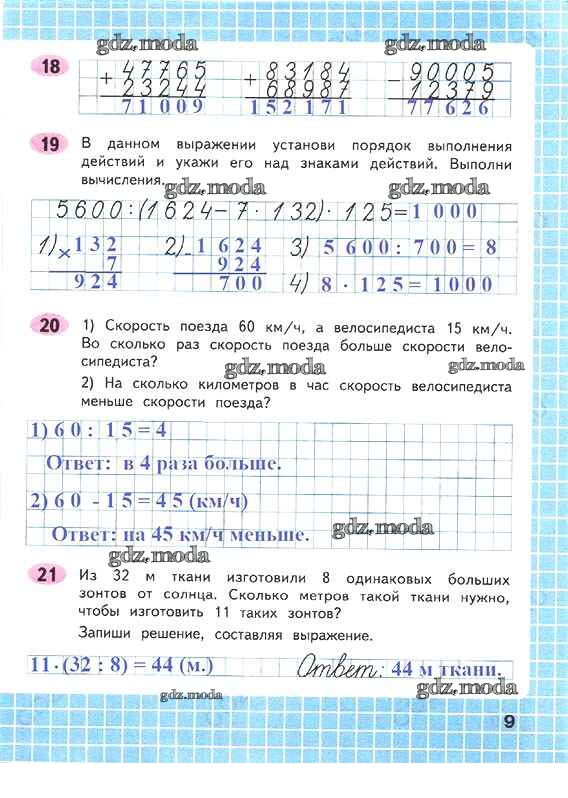 gdz.moda gdz.moda
18 + 47765 + 83184 - 90005
23244 68987 12379
71 009 152 171 77 626
19 В данном выражении установи порядок выполнения
действий и укажи его над знаками действий. Выполни
вычисления.
gdz.moda gdz.moda
5600:(1624-7·132)·125=1 000
1) × 132 2) - 1 624 3) 5 600 : 700 = 8
7 924
924 700 4) 8 · 125 = 1000
20 1) Скорость поезда 60 км/ч, а велосипедиста 15 км/ч.
Во сколько раз скорость поезда больше скорости вело-
сипедиста?
gdz.moda gdz.moda
2) На сколько километров в час скорость велосипедиста
меньше скорости поезда?
1) 60 : 15 = 4
Ответ: в 4 раза больше.
2) 60 - 15 = 45 (км/ч)
Ответ: на 45 км/ч меньше.
gdz.moda
gdz.moda
21 Из 32 м ткани изготовили 8 одинаковых больших
зонтов от солнца. Сколько метров такой ткани нужно,
чтобы изготовить 11 таких зонтов?
Запиши решение, составляя выражение.
11·(32 : 8) = 44 (м.) Ответ: 44 м ткани.
gdz.moda gdz.moda
9